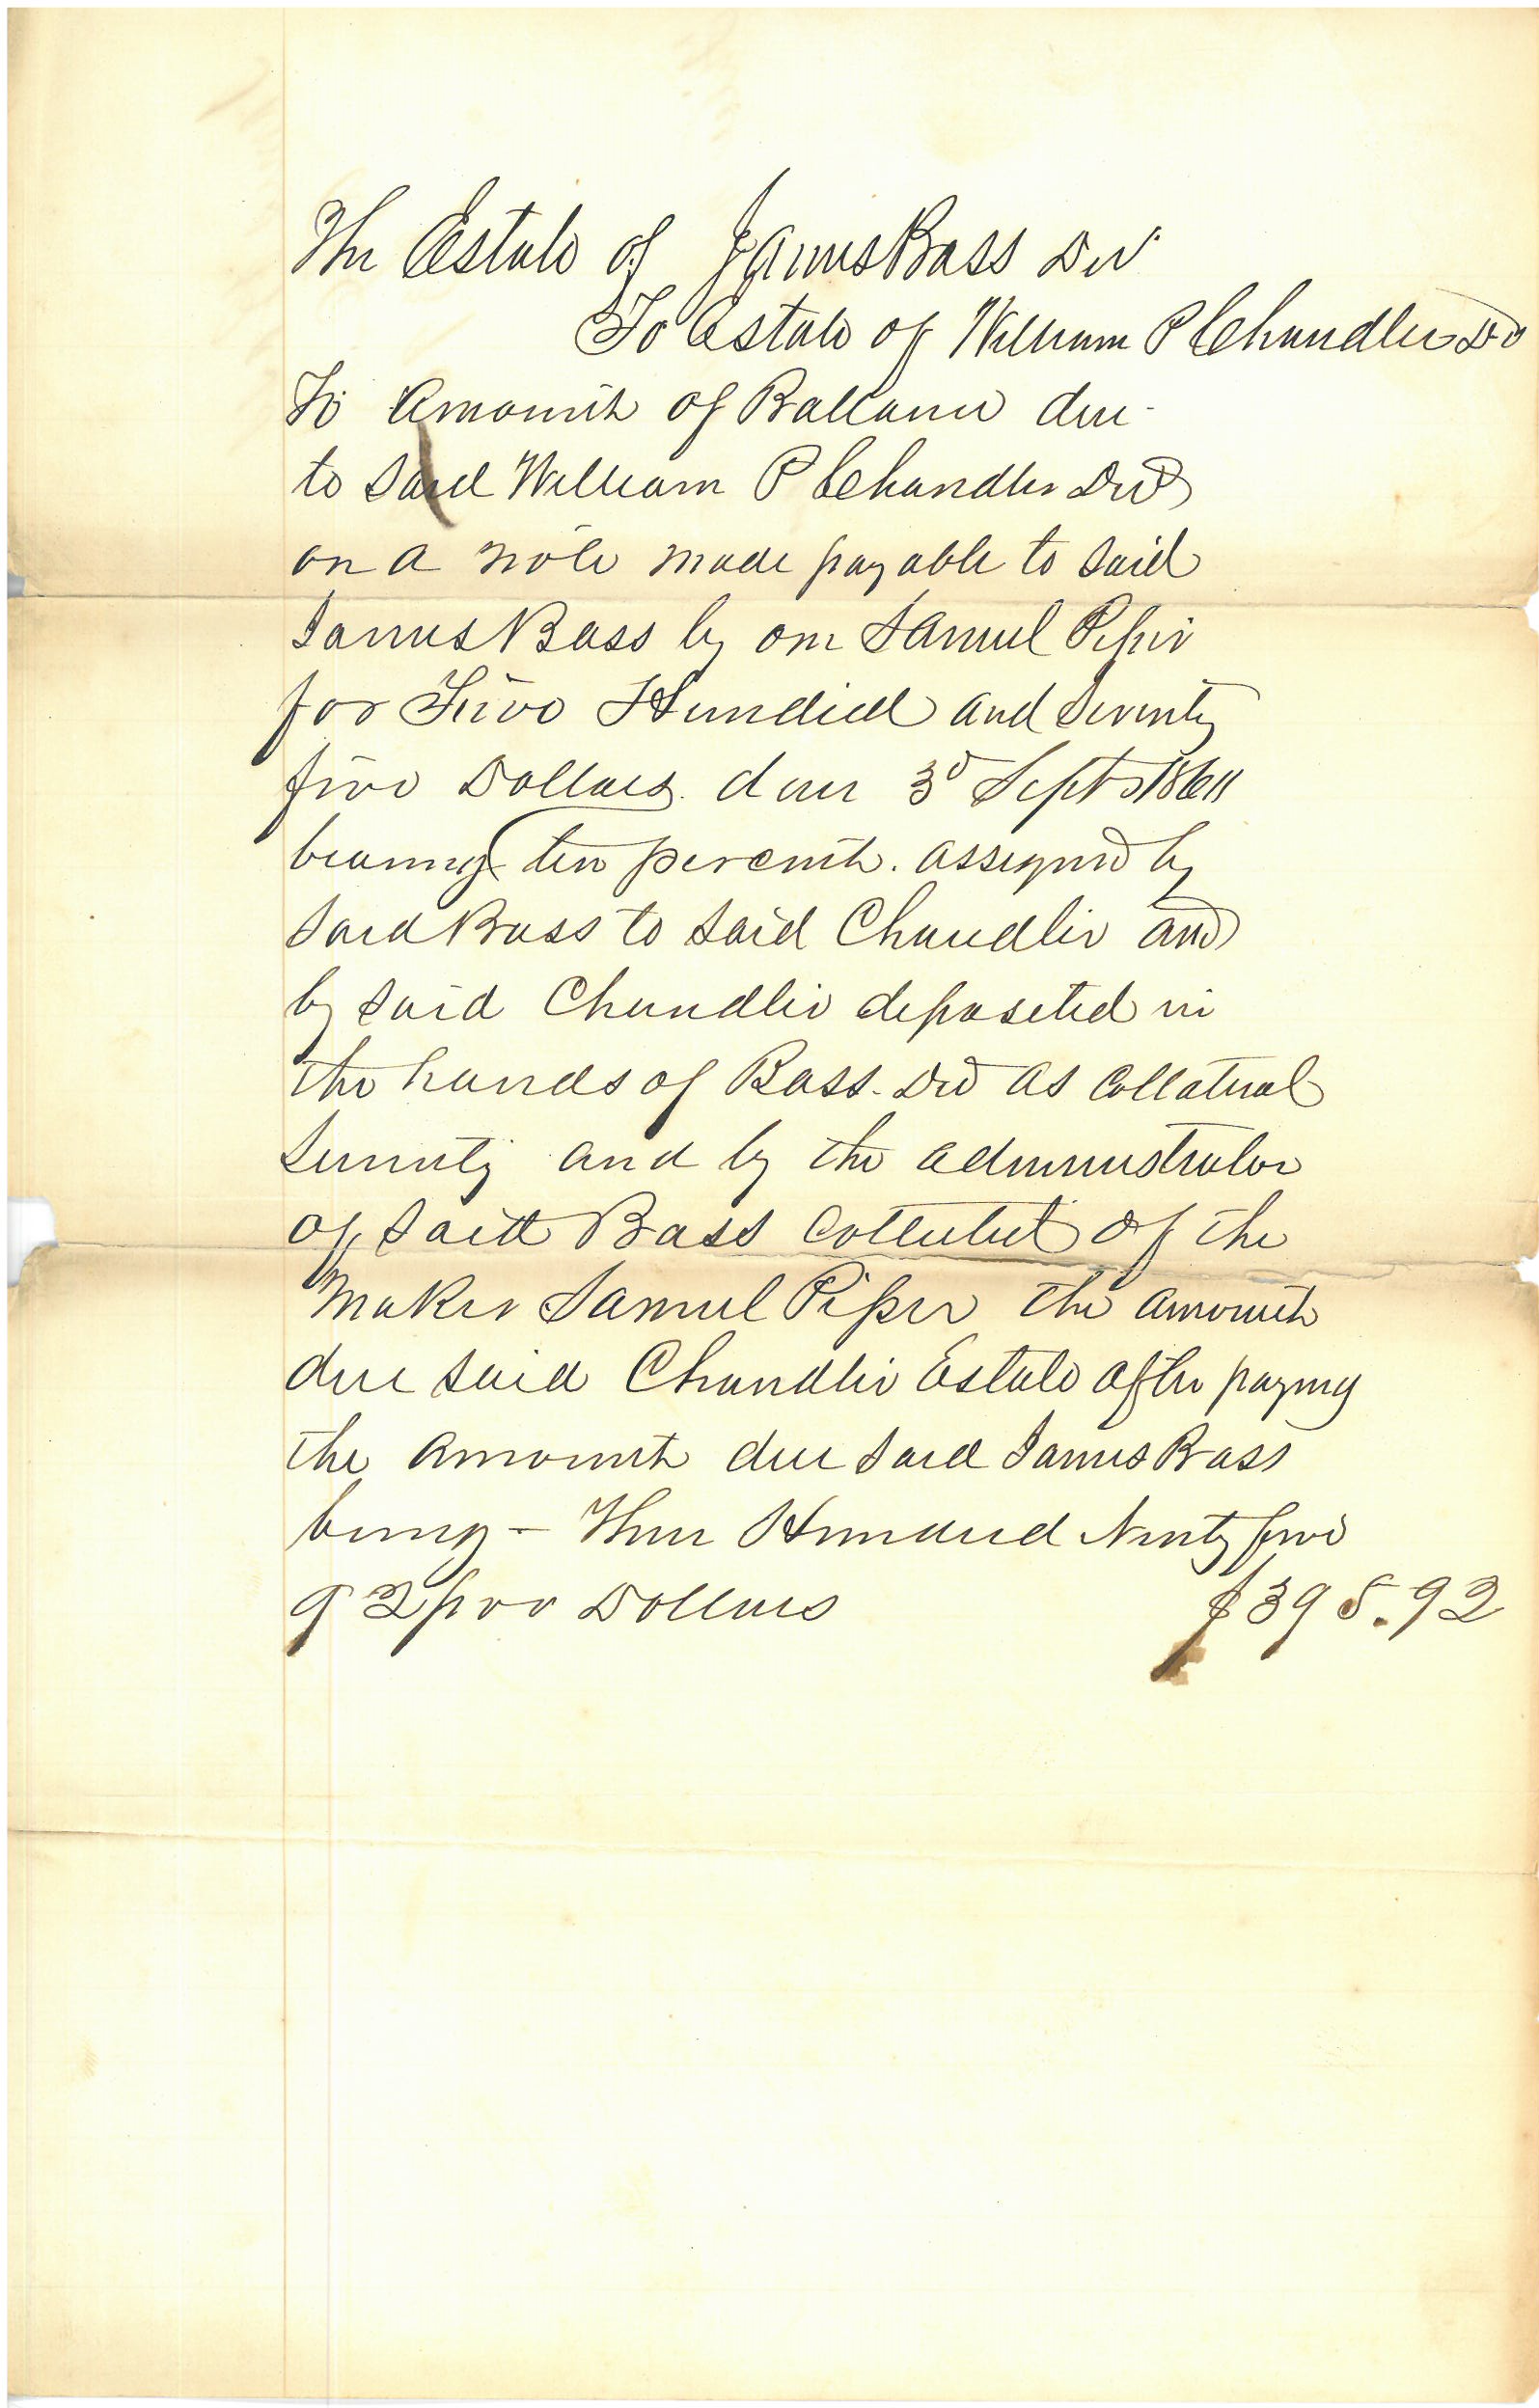 The Estate of James Bass Decd
To Estate of William P Chandler Decd
To Amount of Ballance due
to said William P Chandler Decd
on a note made payable to said
James Bass by one Samuel Piper
for Five Hundred and Seventy
five Dollars due 3d Sept 1861
bearing ten percent. assigned by
said Bass to said Chandler and
by said Chandler deposeted in
the hands of Bass Decd as Collateral
Security and by the administrator
of said Bass Collected of the
Maker Samuel Piper the amount
due said Chandler Estate after paying
the amount due said James Bass
being - Three Hundred Ninty five
92/100 Dollars $395.92